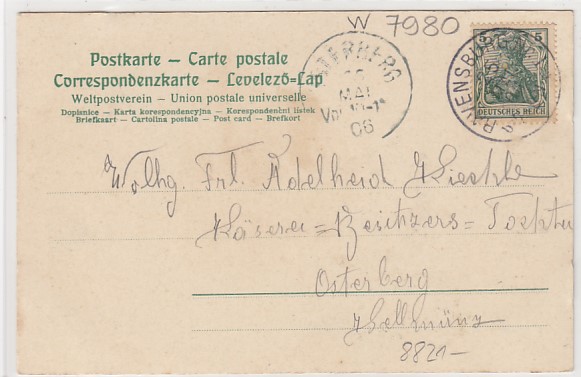 W 7980
Postkarte – Carte postale
Correspondenzkarte – Levelező-Lap
Weltpostverein – Union postale universelle
Dopisnice – Karta korespondencyjna – Korespondenční lístek
Briefkaart – Cartolina postale – Post card – Brefkort
OSTERBERG
MAI
06
RAVENSBURG
5
DEUTSCHES REICH
Wolhg. Frl. Adelheid
Käserei=Besitzers=Tochter
Osterberg
Kellmünz
8821–